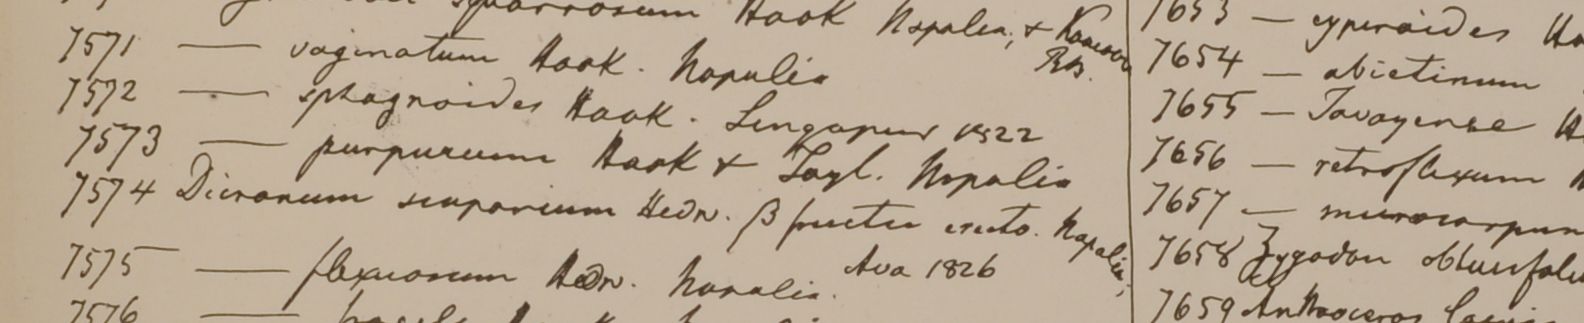 squarrosum Hook Napalia, & Kamoon
RB.
7571 — vaginatum Hook. Napalia
7572 — sphagnoides Hook. Singapur 1822
7573 — purpureum Hook & Tayl. Napalia
7574 Dicranum scoparium Hedw. β fructu erecto. Napalia;
Ava 1826
7575 — flexuosum Hedw. Napalia.
7576 —
7653 — cyperoides
7654 — abietinum
7655 — Tavoyense
7656 — retroflexum
7657 —
7658 Zygodon obtusifoliu
7659 Anthoceros laevis